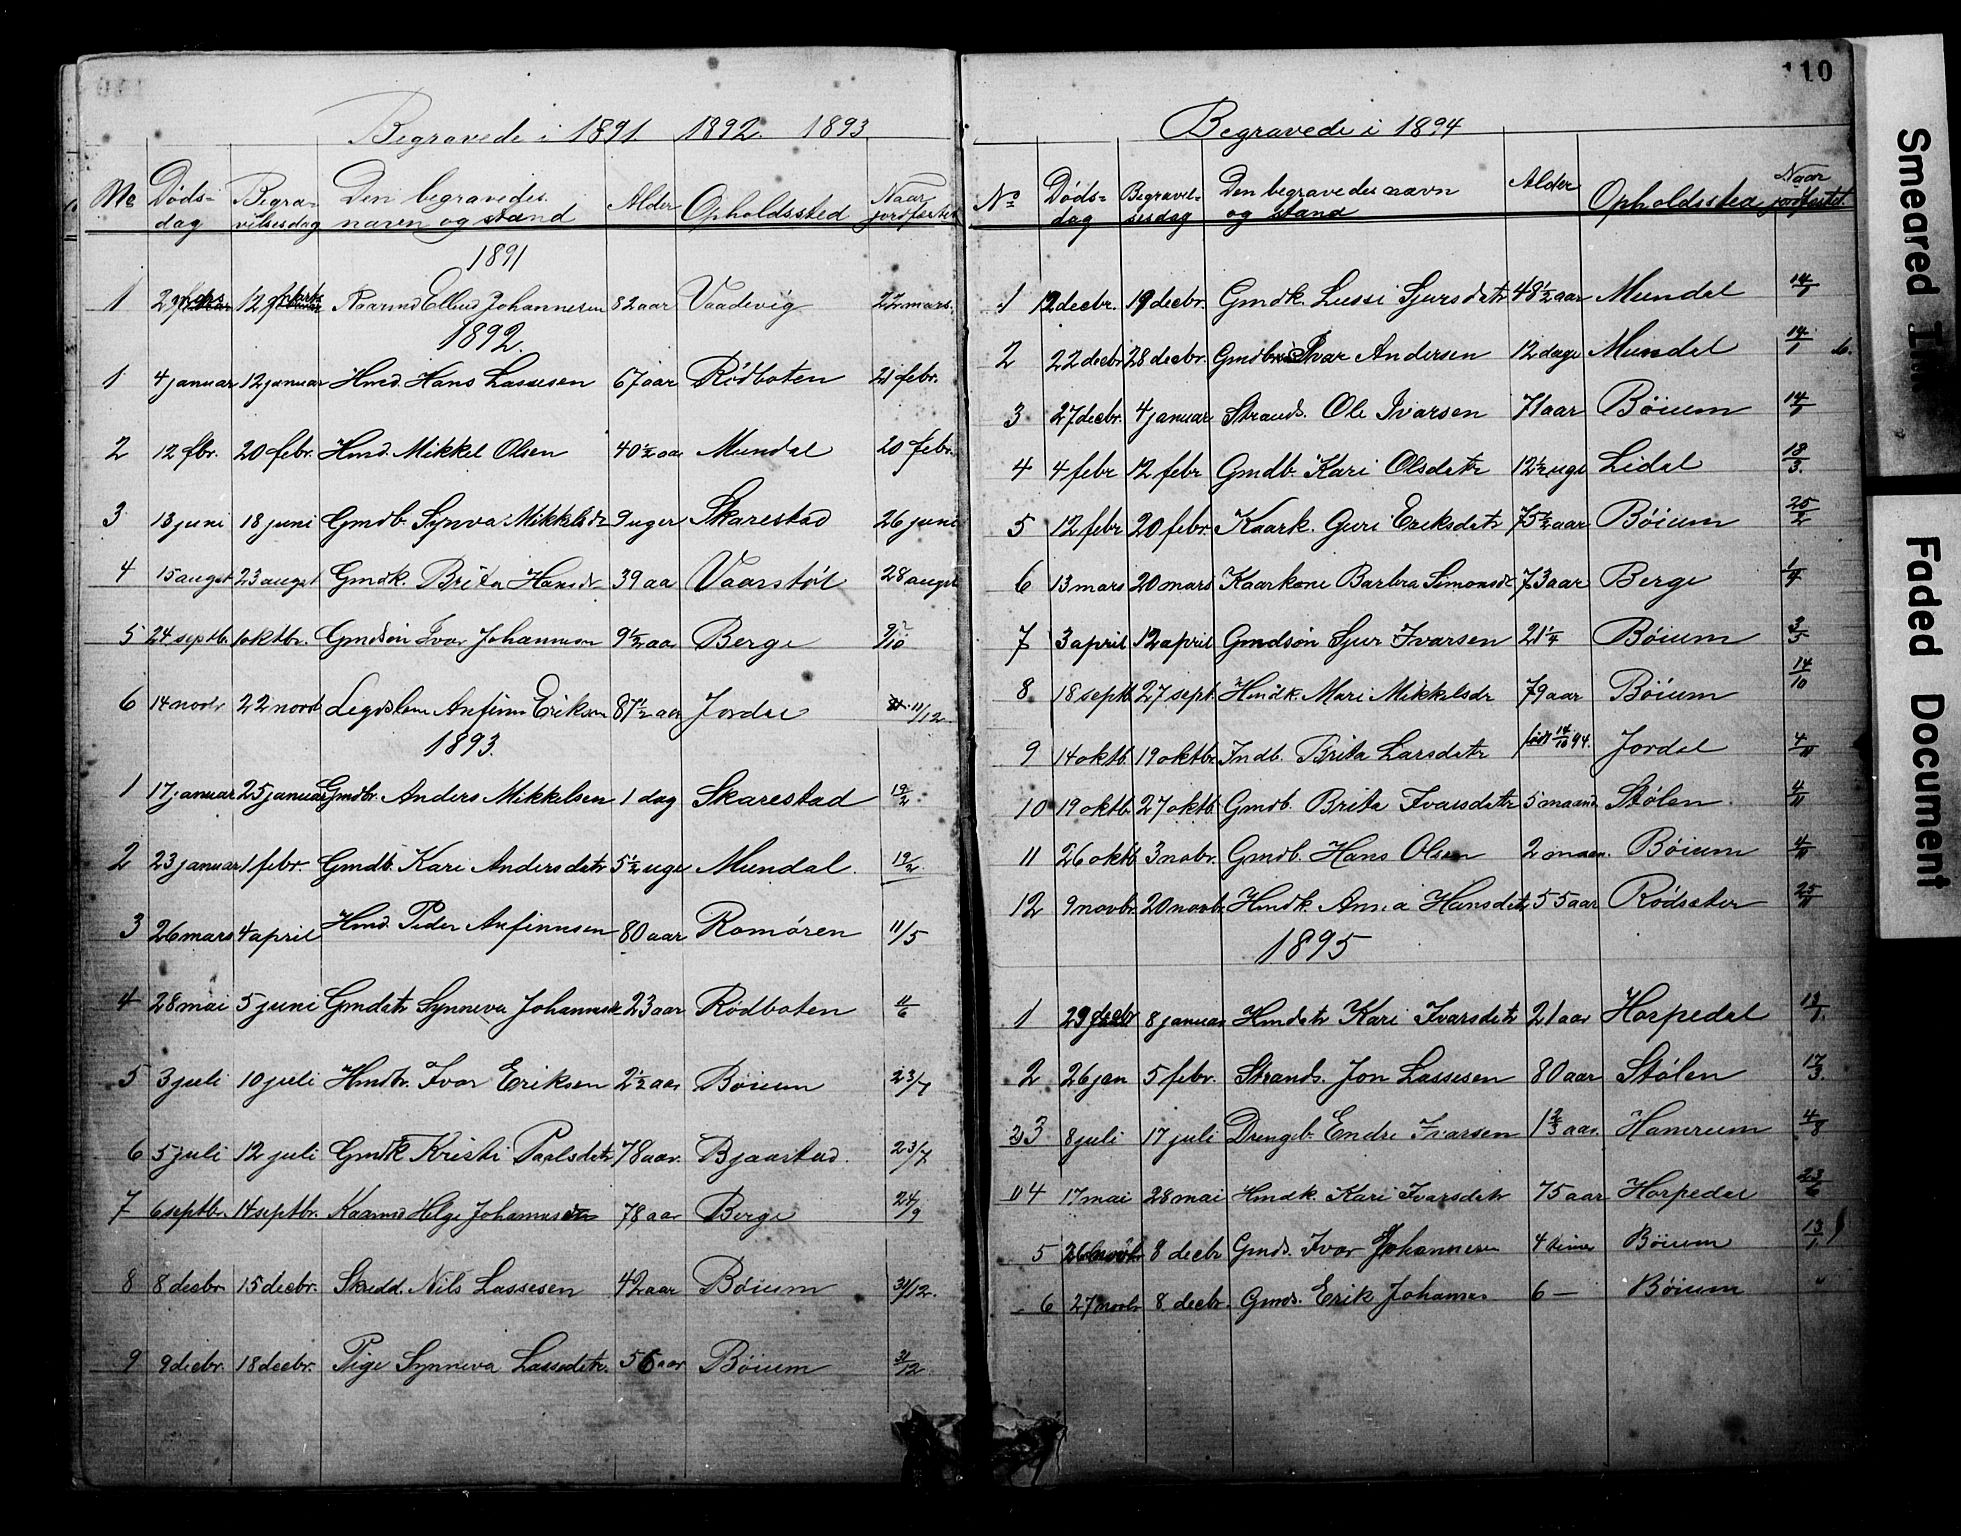 Begravede i 1891. 1892. 1893
No Døds-dag Begra-vilsesdag Den begravedes navn og stand Alder Opholdssted Naar jordfæstet
1891
1 2 mars 12 Ellend Johannesen 82 aar Vaadevig 22 mars.
1892.
1 4 januar 12 januar Hmd. Hans Lassesen 67 aar Rödboten 21 febr.
2 12 fbr. 20 febr. Hmd. Mikkel Olsen 40 1/2 aar Mundal 20 febr.
3 13 juni 18 juni Gmdb. Synva Mikkelsdr 9 uger Skarestad 26 juni
4 15 augst 23 augst Gmdk. Brita Hansdr 39 aa Vaarstöl 28 augst
5 24 septb. 1 oktbr. Gmdsön Ivar Johannesen 9 1/2 aar Berge 9/10
6 14 novbr 22 novb Legdslem Anfinn Eriksen 87 1/2 aar Jordal 11/12
1893.
1 17 januar 25 januar Gmdbr. Anders Mikkelsen 1 dag Skarestad 12/2
2 23 januar 1 febr. Gmdb. Kari Andersdatr 5 1/2 uge Mundal. 12/2.
3 26 mars 4 april Hmd. Peder Anfinnsen 80 aar Romøren 11/5
4 28 mai 5 juni Gmdatr Synneva Johannesdr 23 aar Rødboten 11/6
5 3 juli 10 juli Hmdbr. Ivar Eriksen 2 1/2 aar Bøium 23/7
6 5 juli 12 juli Gmdk Kristi Paalsdatr 78 aar. Bjaastad. 23/7
7 6 septb. 14 septbr. Kaarmd Helge Johannesen 78 aar Berge 24/9
8 8 decbr. 15 decbr. Skredd. Nils Lassesen 42 aar Bøium 31/12.
9 9 decbr. 18 decbr. Pige Synneva Lassedatr. 56 aar Bøium 31/12
110
Begravede i 1894
No Døds-dag Begravel-sesdag Den begravedes navn og stand Alder Opholdssted Naar jordfæstet.
1 12 decbr. 19 decbr. Gmdk. Lussi Sjursdatr 48 1/2 aar Mundal 14/1
2 22 decbr 28 decbr. Ivar Andersen 12 dage Mundal 14/1
3 27 decbr. 4 januar Strands. Ole Ivarsen 71 aar Bøium 14/1
4 4 febr 12 febr Gmdb. Kari Olsdatr 12 1/2 uge Lidal 18/3.
5 12 febr 20 febr. Kaark. Guri Eriksdatr 75 1/2 aar Bøium 25/2
6 13 mars 20 mars Kaarkone Barbra Simonsdr 73 aar Berge 1/4
7 3 april 12 april Gmdsön Sjur Ivarsen 21 1/4 Bøium 3/5
8 18 septb 27 sept. Hmdk. Mari Mikkelsdr 79 aar Bøium 14/10
9 14 oktb. 19 oktbr. Indb. Brita Larsdatr föd 14/10 94. Jordal 4/11
10 19 oktb. 27 oktb. Gmdb. Brita Ivarsdatr 5 maand. Stølen. 4/11
11 26 oktb. 3 nobr. Gmdb. Hans Olsen 2 maan. Bøium 4/11
12 9 novbr. 20 novbr. Hmdk. Anna Hansdatr 55 aar Rødsæter 25/11
1895
1 29 decbr 8 januar Hmdatr Kari Ivarsdatr 21 aar Horpedal 13/1.
2 26 jan 5 febr. Strands. Jon Lassesen 80 aar Stølen 17/3.
3 8 juli 17 juli Drengeb. Endre Ivarsen 1 2/3 aar. Hamrum 4/8
4 17 mai 28 mai Hmdk. Kari Ivarsdatr 75 aar Horpedal 23/6
5 26 novbr 8 decbr Gmds. Ivar Johannesen 4 timer Bøium 13/1
6 27 novbr 8 decbr. Gmds. Erik Johannes 6 — Bøium "
Smeared
Faded Document